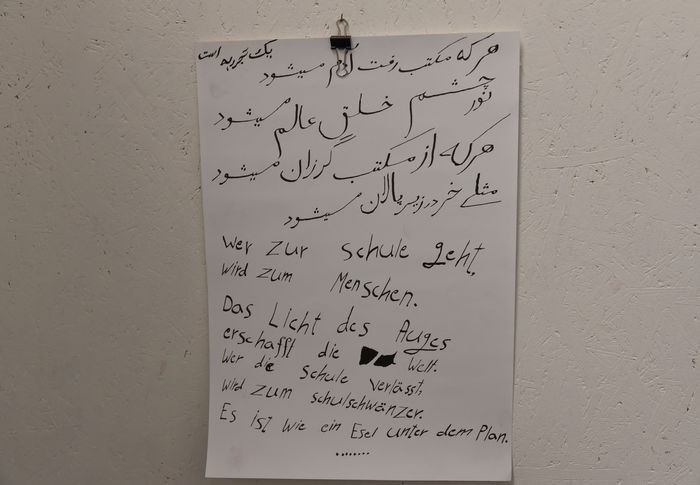 یک تجربه است
هر که مکتب رفت آدم میشود
نور چشم خلق عالم میشود
هر که از مکتب گرزان میشود
مثلے خر در زیر پالان میشود
Wer zur schule geht,
wird zum Menschen.
Das Licht des Auges
erschafft die Welt.
Wer die schule verlässt,
wird zum schulschwänzer.
Es ist wie ein Esel unter dem Plan.
........